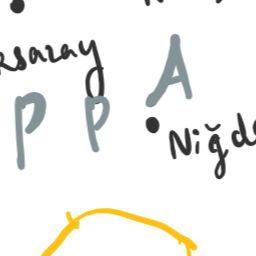 ksaray
P P A
Niğd